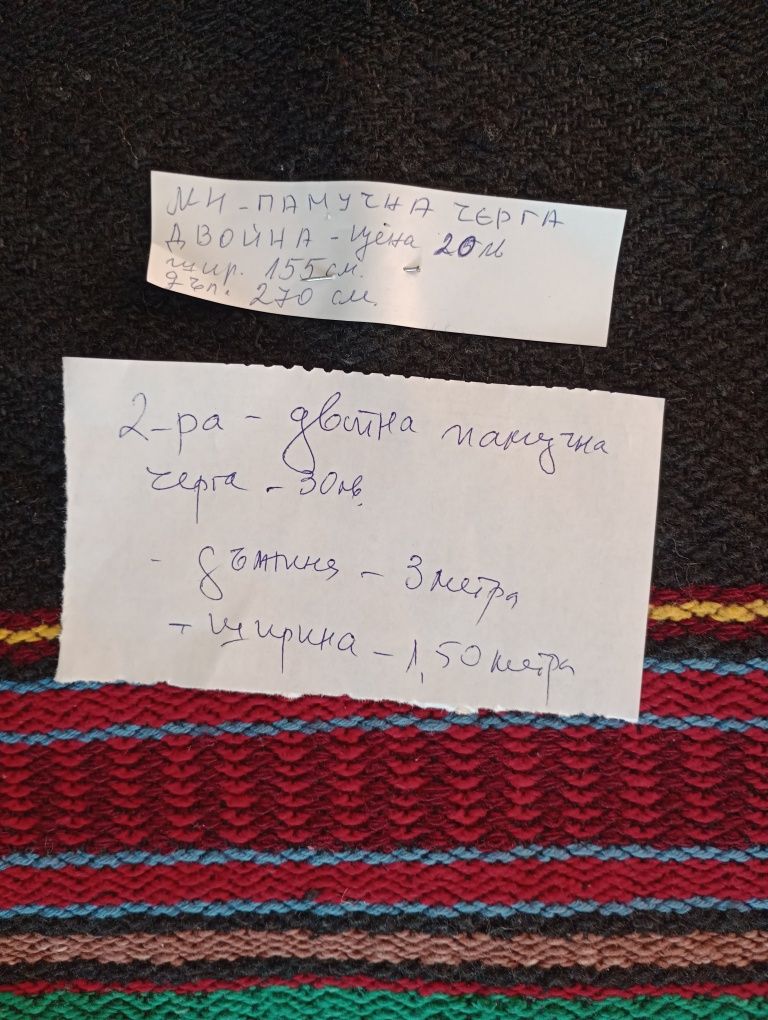 МН - ПАМУЧНА ЧЕРГА
ДВОЙНА - цена 20лв
шир. 155 см.
дъл. 270 см.
2-ра - двойна памучна
черга - 30лв.
- дължина - 3 метра
- ширина - 1,50 метра